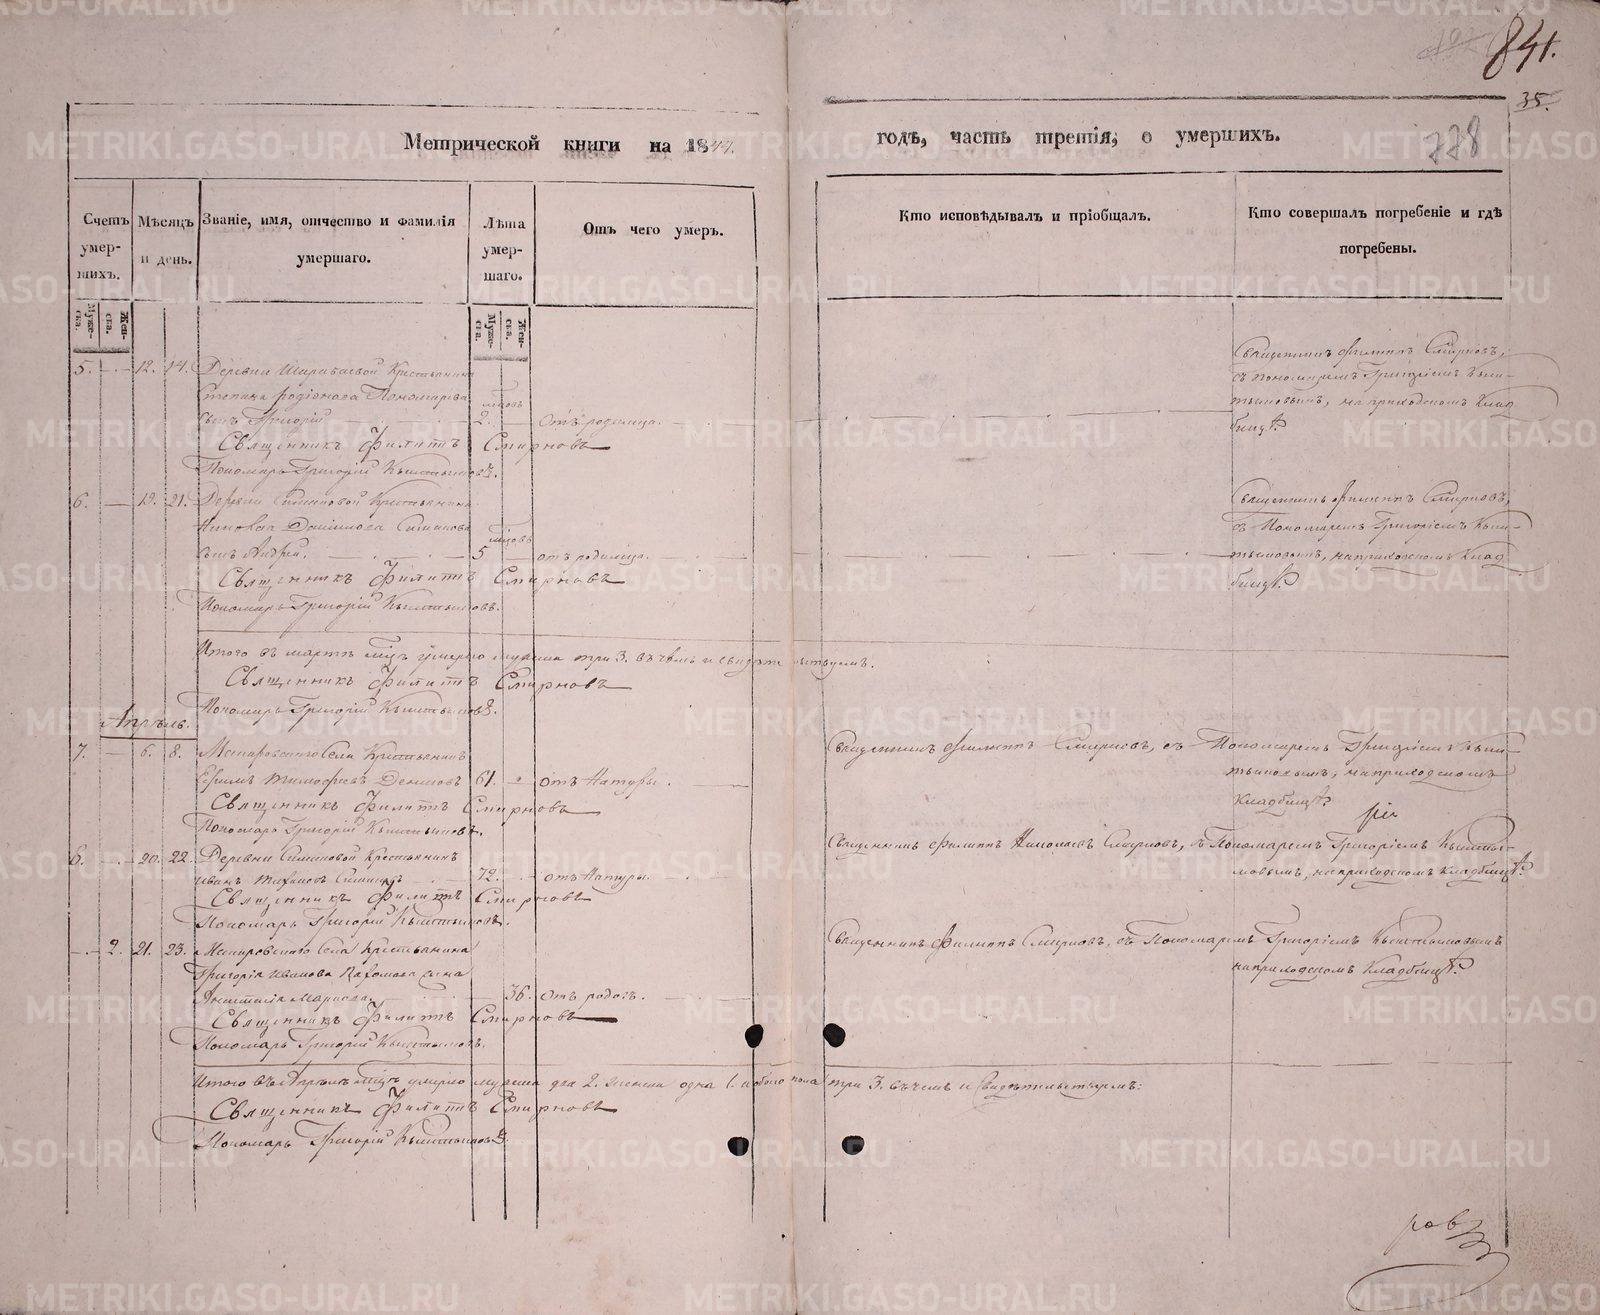 841.
35.
778
Метрической книги на 1847.
годъ, часть третія, о умершихъ.
Счетъ умер-шихъ.
Мужеска.
Женска.
Мѣсяцъ и день.
Званіе, имя, отчество и фамилія умершаго.
Лѣта умер-шаго.
Мужеска.
Женска.
Отъ чего умеръ.
Кто исповѣдывалъ и пріобщалъ.
Кто совершалъ погребеніе и гдѣ погребены.
5. 12. 14. Деревни Крестьянина
Степана Родіонова Пономарева
сынъ Григорій 2. мцовъ отъ родимца.
Священникъ Филиппъ Смирновъ
Пономарь Григорій
Священникъ Филиппъ Смирновъ,
съ пономаремъ Григоріемъ
на приходскомъ клад-
бищѣ.
6. 19. 21. Деревни Симановой Крестьянина
Симанова
сынъ Андрей. 5 мцовъ отъ родимца.
Священникъ Филиппъ Смирновъ
Пономарь Григорій
Священникъ Филиппъ Смирновъ,
съ Пономаремъ Григоріемъ
на приходскомъ клад-
бищѣ.
Итого въ мартѣ мцѣ умерло мужеска три 3. въ чемъ и свидѣтельствуемъ.
Священникъ Филиппъ Смирновъ
Пономарь Григорій
Апрѣль.
7. 6. 8. Села Крестьянинъ
Ефимъ Тимофѣевъ Денисовъ 61. отъ Натуры.
Священникъ Филиппъ Смирновъ
Пономарь Григорій
Священникъ Филиппъ Смирновъ, съ Пономаремъ Григоріемъ
на приходскомъ
кладбищѣ.
8. 20. 22. Деревни Симановой Крестьянинъ
Иванъ 72. отъ Натуры.
Священникъ Филиппъ Смирновъ
Пономарь Григорій
Священникъ Филиппъ Николаевъ Смирновъ, съ Пономаремъ Григоріемъ
на приходскомъ кладбищѣ.
2. 21. 23. Села Крестьянина
Григорія Иванова жена
36. отъ родовъ.
Священникъ Филиппъ Смирновъ
Пономарь Григорій
Священникъ Филиппъ Смирновъ, съ Пономаремъ Григоріемъ
на приходскомъ кладбищѣ.
Итого въ Апрѣлѣ мцѣ умерло мужеска два 2. женска одна 1. обоего пола три 3. въ чемъ и свидѣтельствуемъ:
Священникъ Филиппъ Смирновъ
Пономарь Григорій
ровъ
METRIKI.GASO-URAL.RU